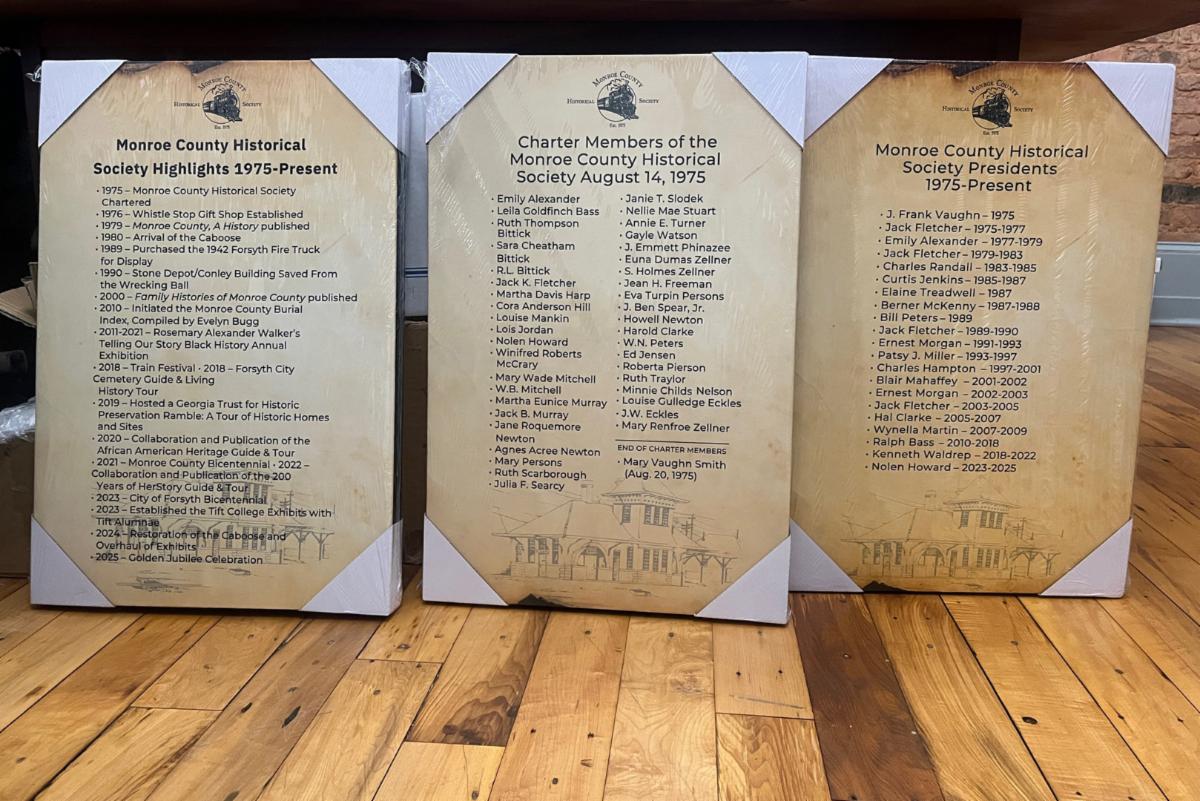 Monroe County
Historical Society
Est. 1975
Monroe County Historical
Society Highlights 1975-Present
• 1975 – Monroe County Historical Society
Chartered
• 1976 – Whistle Stop Gift Shop Established
• 1979 – Monroe County, A History published
• 1980 – Arrival of the Caboose
• 1989 – Purchased the 1942 Forsyth Fire Truck
for Display
• 1990 – Stone Depot/Conley Building Saved From
the Wrecking Ball
• 2000 – Family Histories of Monroe County published
• 2010 – Initiated the Monroe County Burial
Index, Compiled by Evelyn Bugg
• 2011-2021 – Rosemary Alexander Walker's
Telling Our Story Black History Annual
Exhibition
• 2018 – Train Festival · 2018 – Forsyth City
Cemetery Guide & Living
History Tour
• 2019 – Hosted a Georgia Trust for Historic
Preservation Ramble: A Tour of Historic Homes
and Sites
• 2020 – Collaboration and Publication of the
African American Heritage Guide & Tour
• 2021 – Monroe County Bicentennial • 2022 –
Collaboration and Publication of the 200
Years of HerStory Guide & Tour
• 2023 – City of Forsyth Bicentennial
• 2023 – Established the Tift College Exhibits with
Tift Alumnae
• 2024 – Restoration of the Caboose and
Overhaul of Exhibits
• 2025 – Golden Jubilee Celebration
Monroe County
Historical Society
Est. 1975
Charter Members of the
Monroe County Historical
Society August 14, 1975
• Emily Alexander
• Leila Goldfinch Bass
• Ruth Thompson
Bittick
• Sara Cheatham
Bittick
• R.L. Bittick
• Jack K. Fletcher
• Martha Davis Harp
• Cora Anderson Hill
• Louise Mankin
• Lois Jordan
• Nolen Howard
• Winifred Roberts
McCrary
• Mary Wade Mitchell
• W.B. Mitchell
• Martha Eunice Murray
• Jack B. Murray
• Jane Roquemore
Newton
• Agnes Acree Newton
• Mary Persons
• Ruth Scarborough
• Julia F. Searcy
• Janie T. Slodek
• Nellie Mae Stuart
• Annie E. Turner
• Gayle Watson
• J. Emmett Phinazee
• Euna Dumas Zellner
• S. Holmes Zellner
• Jean H. Freeman
• Eva Turpin Persons
• J. Ben Spear, Jr.
• Howell Newton
• Harold Clarke
• W.N. Peters
• Ed Jensen
• Roberta Pierson
• Ruth Traylor
• Minnie Childs Nelson
• Louise Gulledge Eckles
• J.W. Eckles
• Mary Renfroe Zellner
END OF CHARTER MEMBERS
• Mary Vaughn Smith
(Aug. 20, 1975)
Monroe County
Historical Society
Est. 1975
Monroe County Historical
Society Presidents
1975-Present
• J. Frank Vaughn – 1975
• Jack Fletcher – 1975-1977
• Emily Alexander – 1977-1979
• Jack Fletcher – 1979-1983
• Charles Randall – 1983-1985
• Curtis Jenkins – 1985-1987
• Elaine Treadwell – 1987
• Berner McKenny – 1987-1988
• Bill Peters – 1989
• Jack Fletcher – 1989-1990
• Ernest Morgan – 1991-1993
• Patsy J. Miller – 1993-1997
• Charles Hampton – 1997-2001
• Blair Mahaffey – 2001-2002
• Ernest Morgan – 2002-2003
• Jack Fletcher – 2003-2005
• Hal Clarke – 2005-2007
• Wynella Martin – 2007-2009
• Ralph Bass – 2010-2018
• Kenneth Waldrep – 2018-2022
• Nolen Howard – 2023-2025